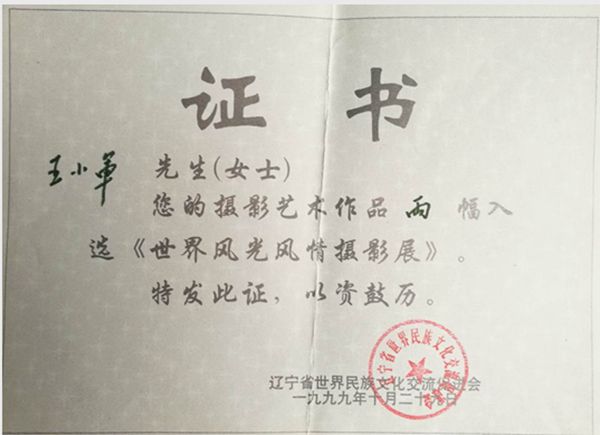 证书
王小军 先生(女士)
您的摄影艺术作品 两 幅入
选《世界风光风情摄影展》。
特发此证，以资鼓历。
辽宁省世界民族文化交流促进会
一九九九年十月二十九日
辽宁省世界民族文化交流促进会